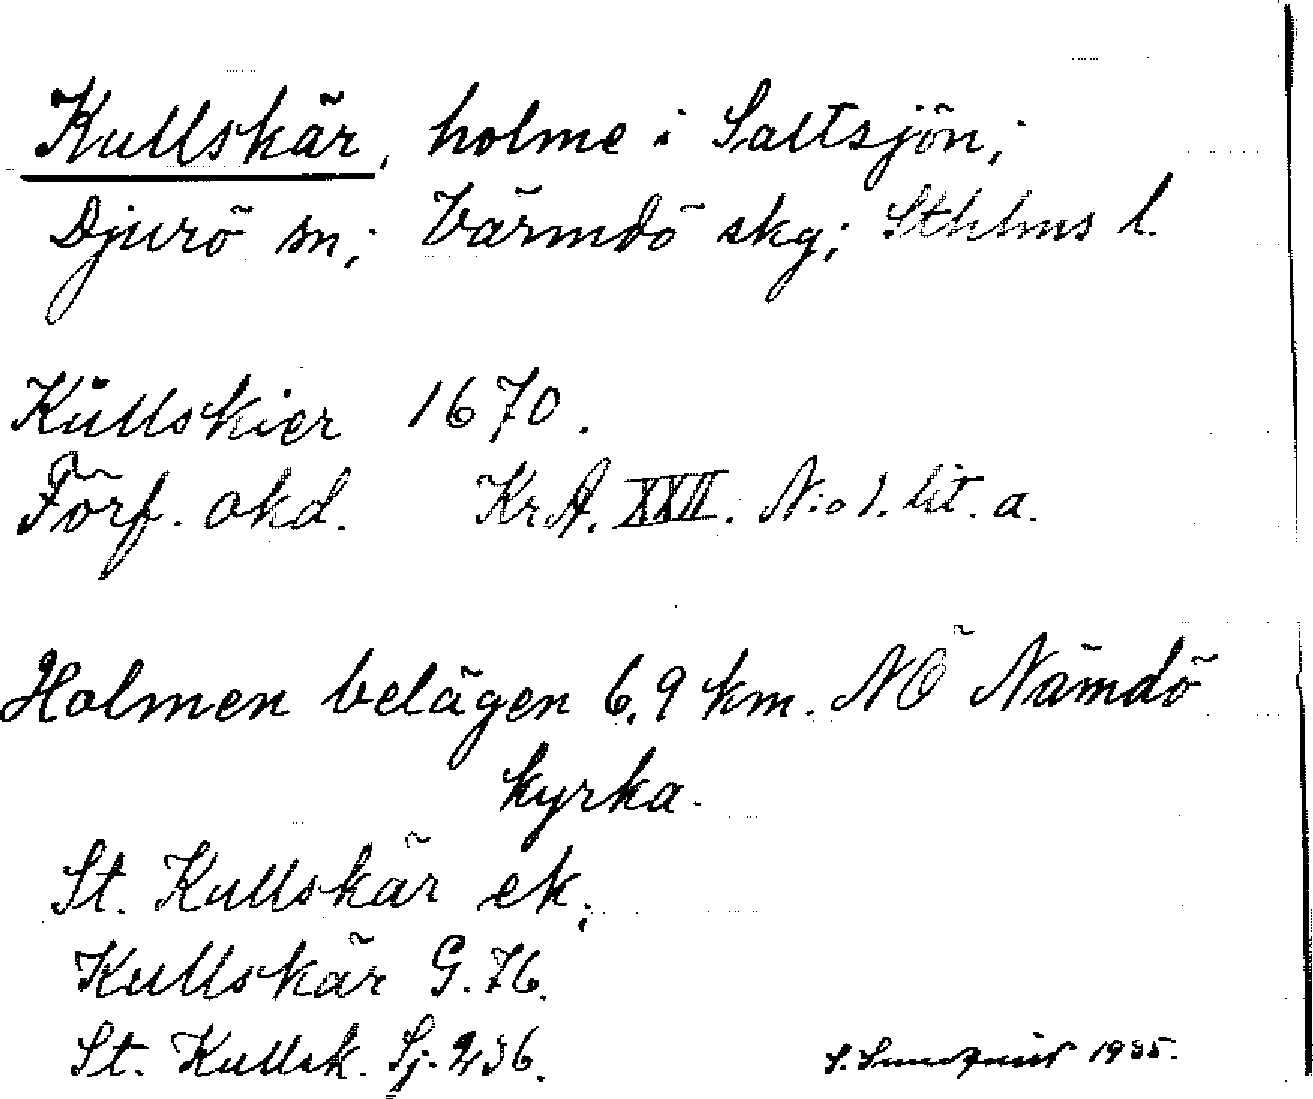 Kullskär, holme i Saltsjön;
Djurö sn; Värmdö skg; Sthlms l.
Kullskier 1670.
Förf. okd. KrA. XXII. N:o 1. lit. a.
Holmen belägen 6,9 km. NÖ Nämdö
kyrka.
St. Kullskär ek;
Kullskär G. 76.
St. Kullsk. Sj. 236.
S. Sundqvist 1935.